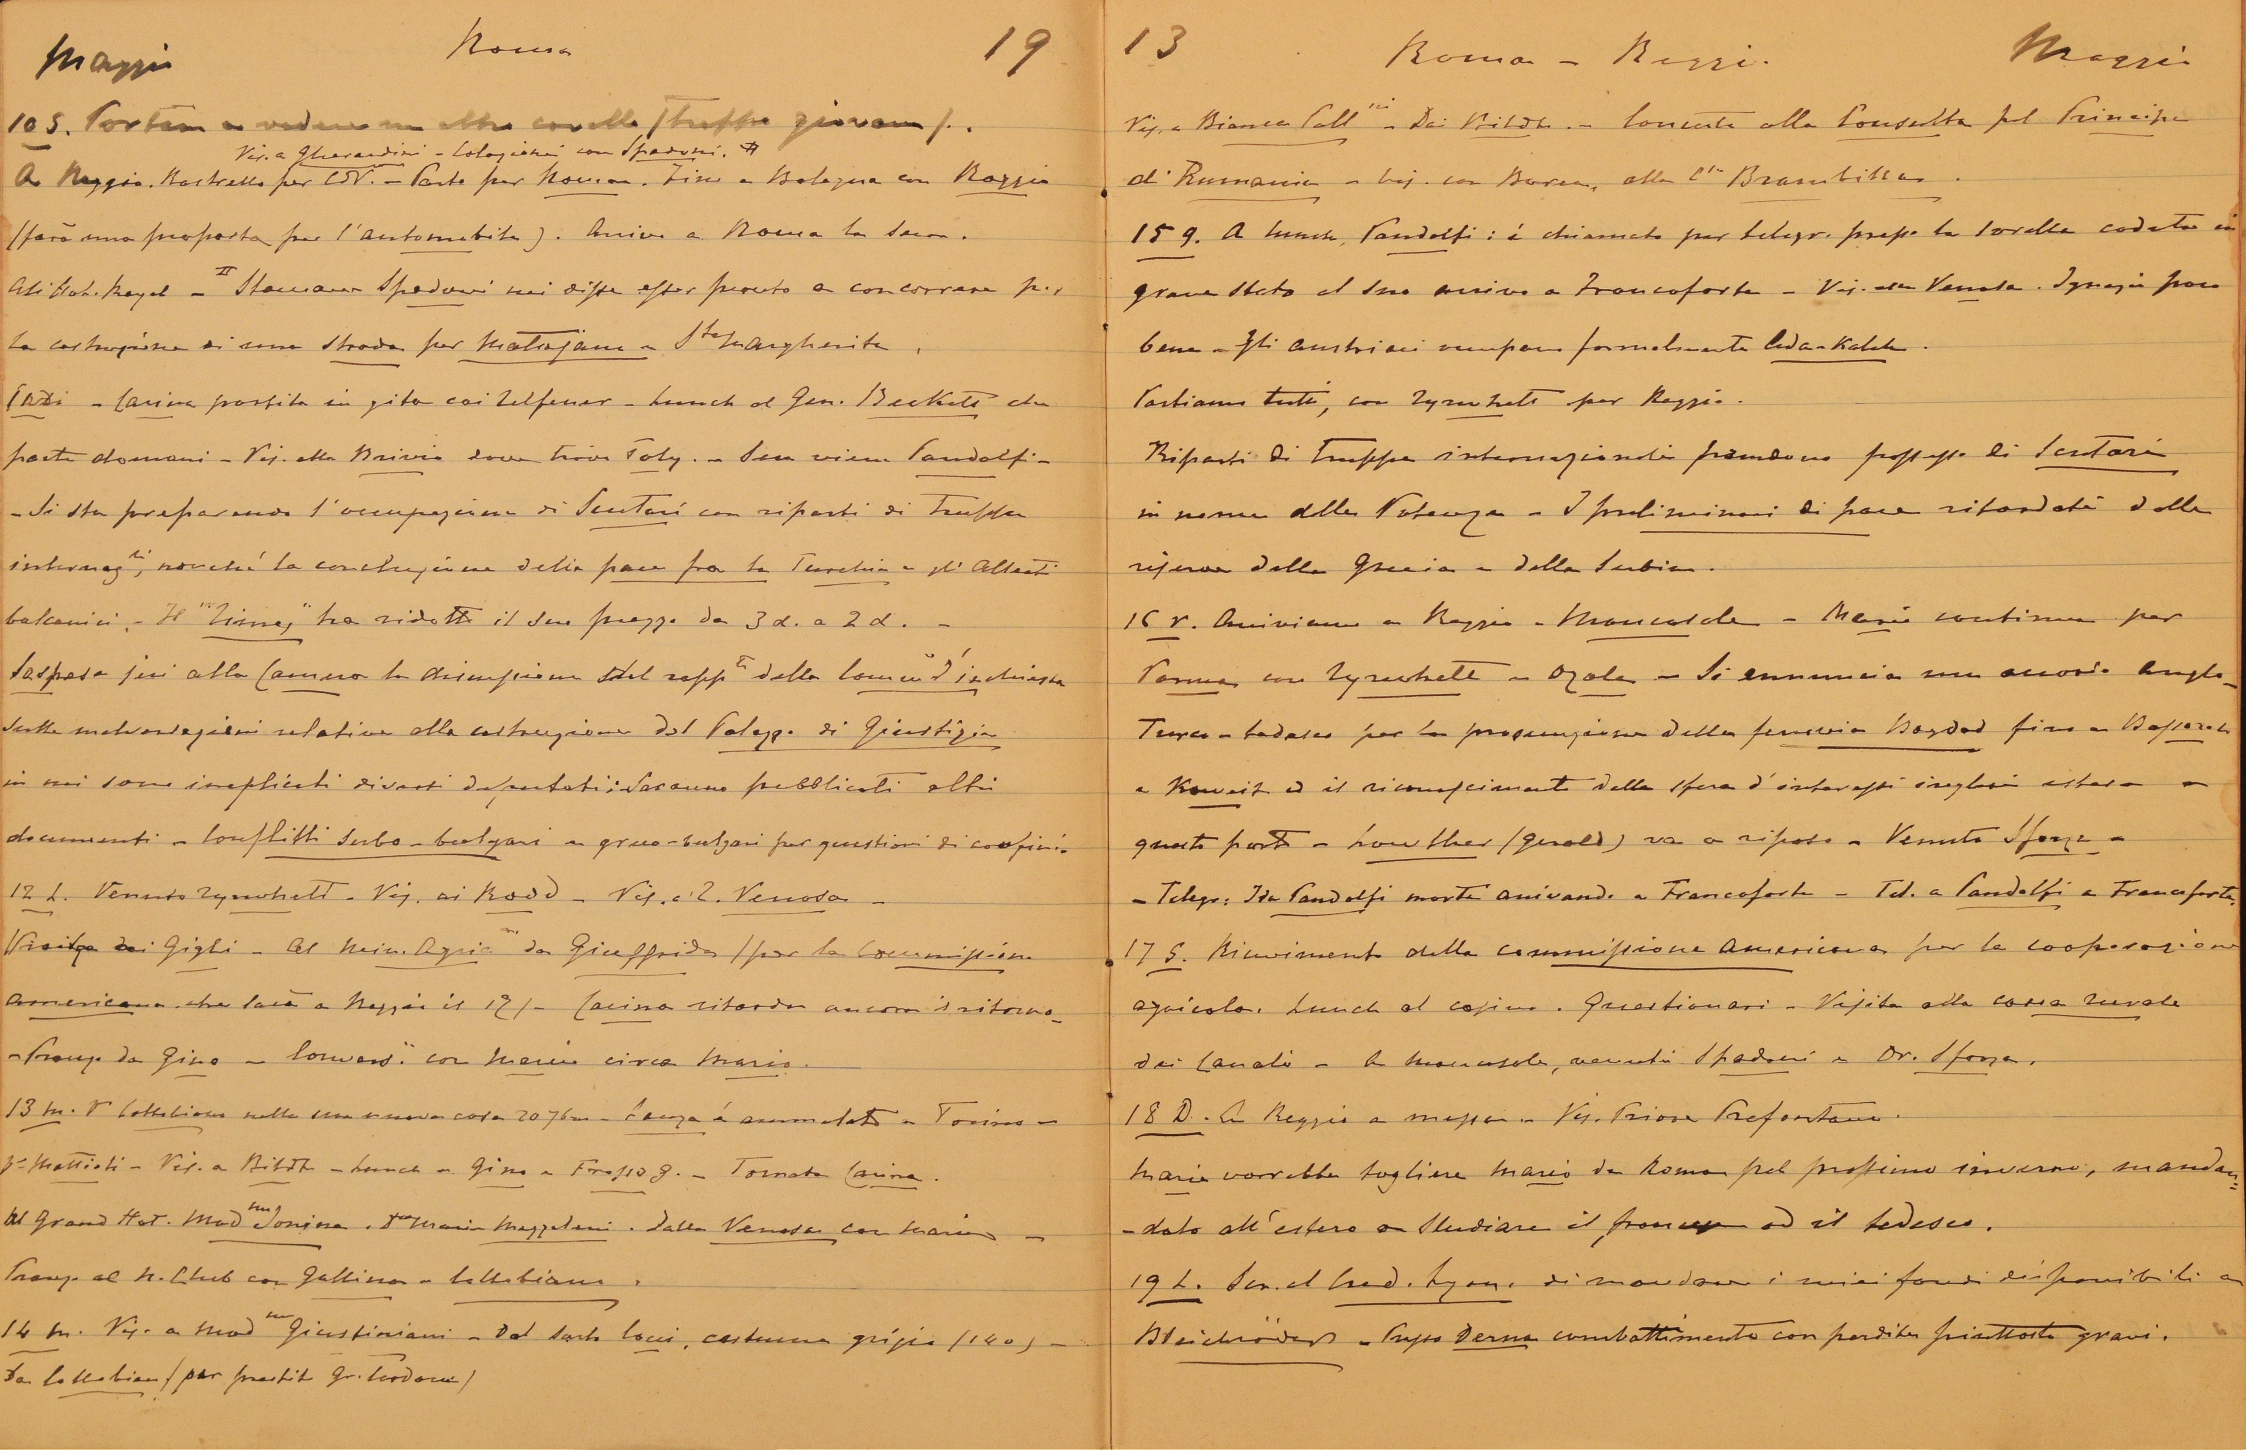 Maggio Roma 19
10 S. Portano a vedere un altro cavallo (troppo giovane).
Vis. a Gherardini – Colazione con Spadoni. #
A Reggio. Rastrello per CdV. – Parto per Roma. Fino a Bologna con Raggio
(farà una proposta per l'automobile). Arrivo a Roma la sera.
All'Hot. Royal – # Stamane Spadoni mi disse esser pronto a concorrere per
la costruzione di una strada per Matajano – Sta Margherita.
– Carina partita in gita coi Telfener – Lunch al Gen. Beckett che
parte domani – Vis. alla Brivio dove trovo Toly. – Sera viene Pandolfi –
– Si sta preparando l'occupazione di Scutari con riparti di truppe
internazli, nonché la conclusione della pace fra la Turchia e gli Alleati
balcanici. – Il "Times" ha ridotto il suo prezzo da 3 d. a 2 d. –
Sospesa ieri alla Camera la discussione del rappti della Comne d'inchiesta
sulle malversazioni relative alla costruzione del Palazzo di Giustizia
in cui sono implicati diversi deputati; saranno pubblicati altri
documenti – Conflitti serbo-bulgari e greco-bulgari per questioni di confini.
12 L. Venuto Zyrohett – Vis. ai Rodd – Vis. a T. Venosa –
dei Gigli – Al Min. Agric da Giuffrida (per la Commissione
americana che sarà a Reggio il 17) – Carina ritarda ancora il ritorno –
– Pranzo da Gino – Convers. con Maria circa Mario.
13 M. Va Collobiano nella sua nuova casa – Lanza è ammalato a Torino –
Mattioli – Vis. a Bildt – Lunch a Gino e Frasso g. – Tornata Carina.
Al Grand Hot. Madme Sonino. Maria Mazzoleni. Dalla Venosa con Maria –
Pranzo al N. Club con Gallina e Collobiano.
14 M. Vis. a Madme Giustiniani – Dal sarto Caui, costume grigio (140) –
Da Collobiano (per prestito Gr. )
13 Roma – Reggio. Maggio
Vis. a Bianca Call – Dai Bildt. – Concerto alla Consulta pel Principe
di Rumania – con Borea, alla Css Brambilla.
15 G. A lunch, Pandolfi: è chiamato per telegr. presso la sorella caduta in
grave stato al suo arrivo a Francoforte – Vis. alla Venosa. Ignazio poco
bene – Gli austriaci occupano formalmente Ada-Kaleh.
Partiamo tutti, con Zyrohett per Reggio.
Riparti di truppe internazionali prendono possesso di Scutari
in nome delle Potenze – I preliminari di pace ritardati dalle
riserve della Grecia e della Serbia.
16 V. Arriviamo a Reggio – Moncasale – Maria continua per
Parma con Zyrohett – Ozola – Si annuncia un accordo anglo-
Turco-tedesco per la prosecuzione della ferrovia Bagdad fino a Bassorah
e Koweit ed il riconoscimento della sfera d'interessi inglesi estesa a
questo porto – Lowther (Gerald) va a riposo – Venuto Sforza –
– Telegr: Ida Pandolfi morta arrivando a Francoforte – Tel. a Pandolfi a Francoforte.
17 S. Ricevimento della commissione americana per la cooperazione
agricola. Lunch al casino. Questionari – Visita alla cassa rurale
dei Canali – A Moncasale, venuti Spadoni e Dr. Sforza.
18 D. A Reggio a messa – Vis. Priore Prefontane.
Maria vorrebbe togliere Mario da Roma pel prossimo inverno, mandan=
-dolo all'estero a studiare il francese ed il tedesco.
19 L. Scr. al Cred. Lyon. di mandare i miei fondi disponibili a
Bleichröder – Presso Derna combattimento con perdite piuttosto gravi.